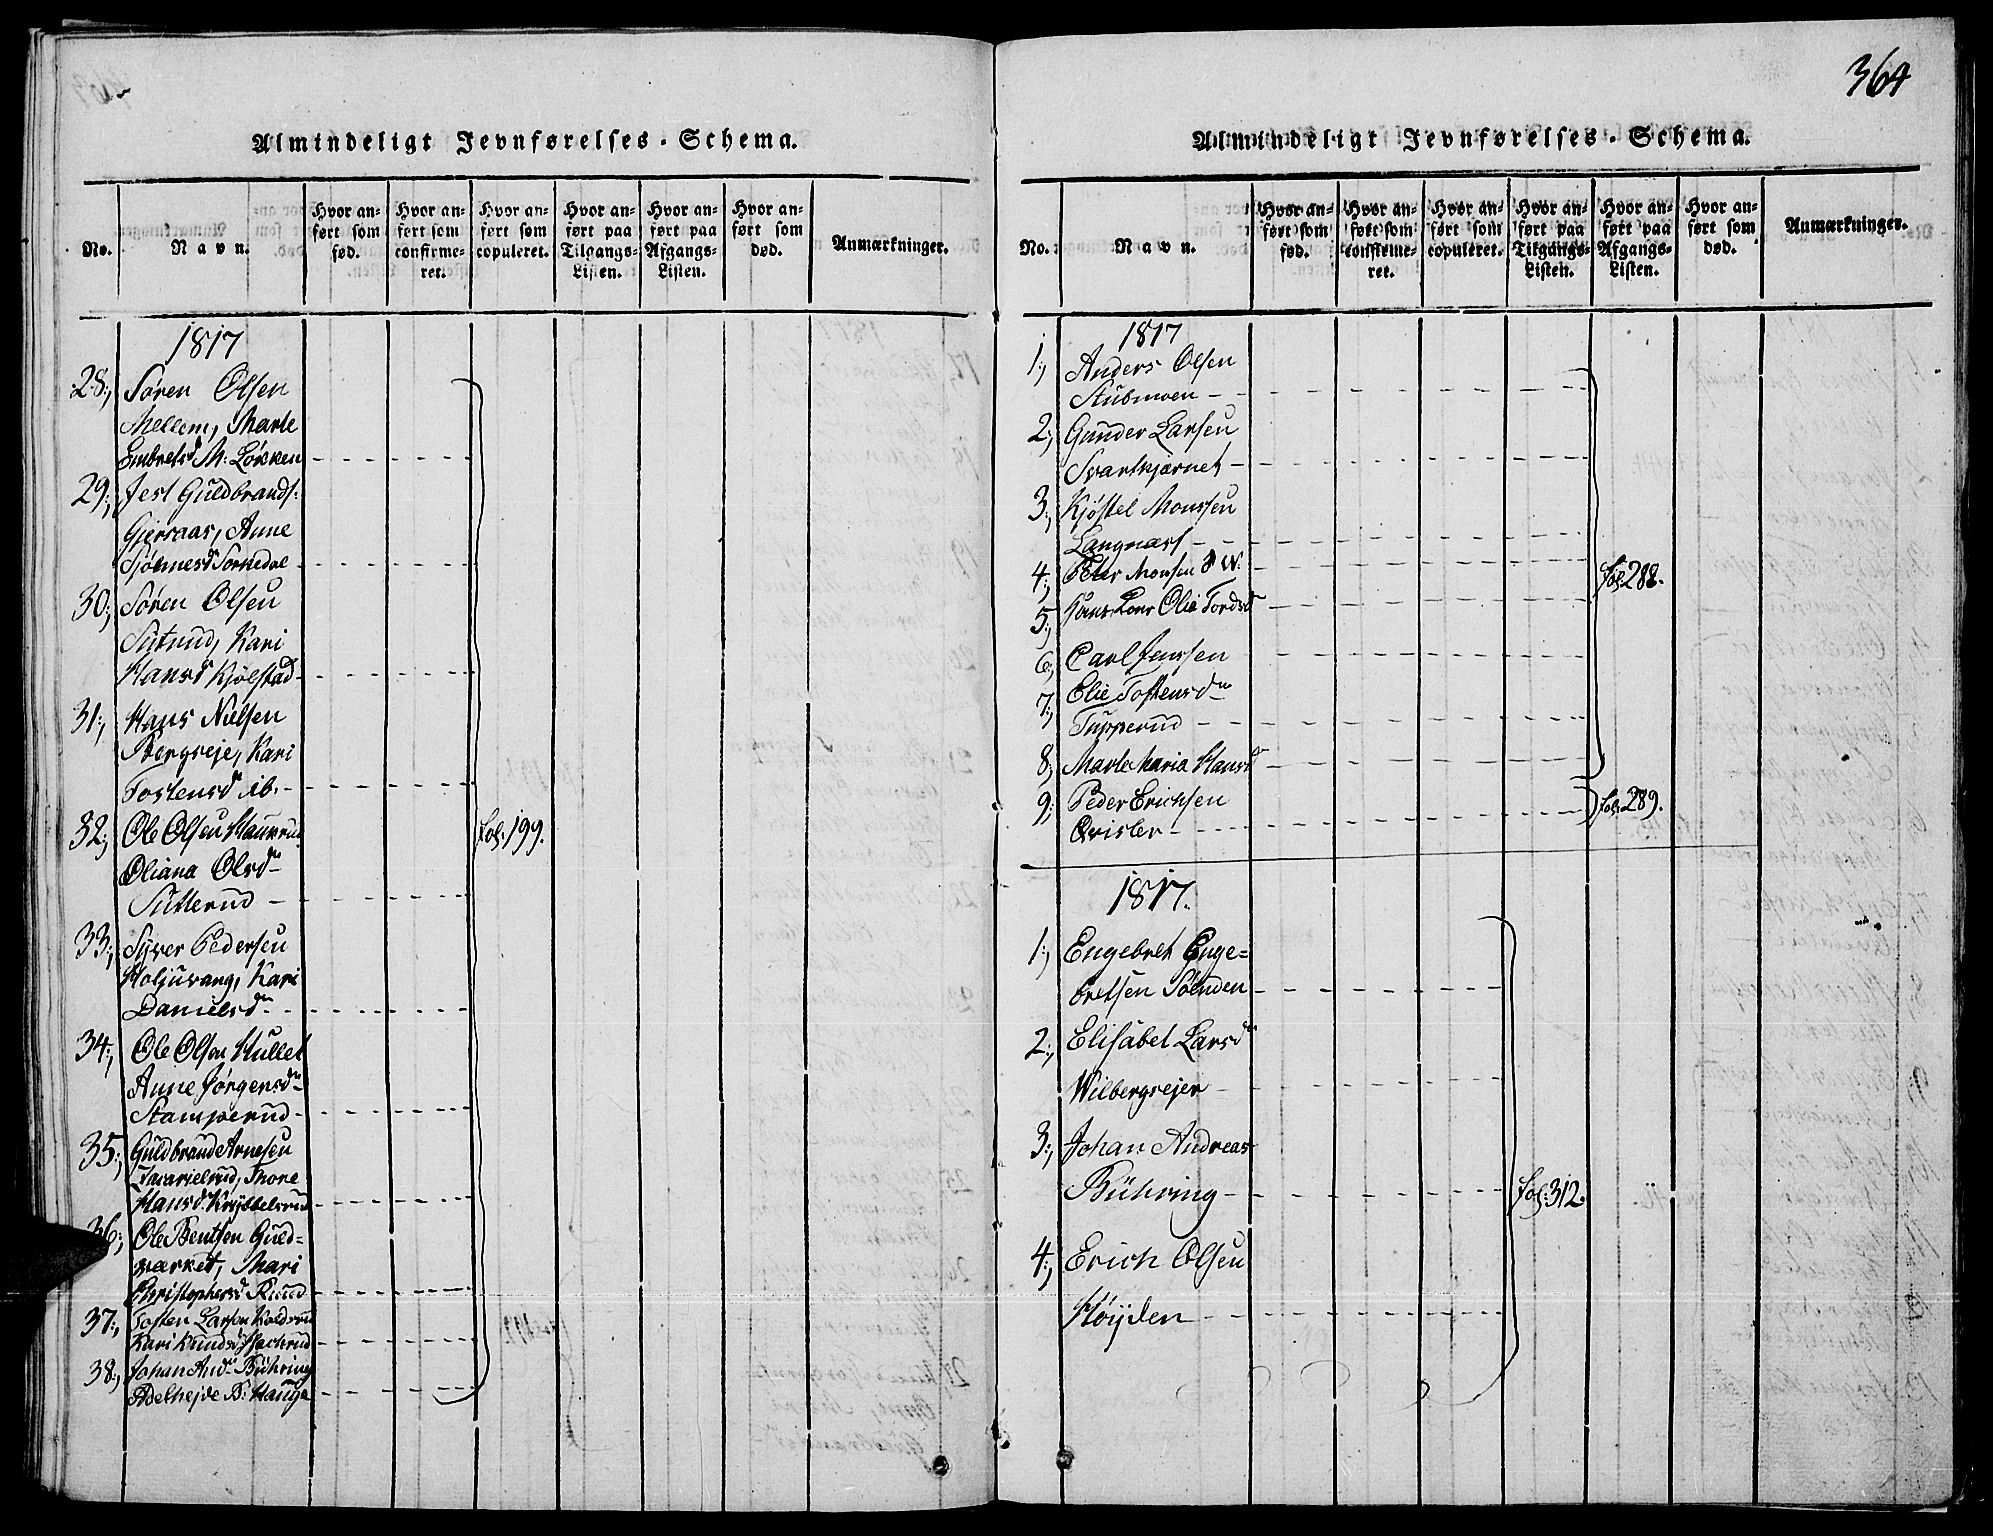 Almindeligt Jevnførelses-Schema.
No.
Navn.
Hvor anført som fød.
Hvor anført som confirmeret.
Hvor anført som copuleret.
Hvor anført paa Tilgangs-Listen.
Hvor anført paa Afgangs-Listen.
Hvor anført som død.
Anmærkninger.
1817
28., Søren Olsen
Mellem, Marte
Embretsd M: Løkken
29., Jest Guldbrands:
Anne
30., Søren Olsen
Kari
Hansd Kjølstad
31., Hans Nielsen
Bergseje, Kari
Tostensd ib.
32., Ole Olsen
Oliana Olsdn
Sutterud
fol: 199.
33., Syver Pedersen
Kari
Danielsdn
34., Ole Olsen Hullet
Anne Jørgensdn
Stamperud
35., Guldbrand Arnesen
Thore
Hansd
36., Ole Bentsen Guld=
værket, Mari
Christophersd Ruud
37., Tosten Larsen
Kari Knudsd
38., Johan And: Bühring
Adelhejde B: Hauge
364
Almindeligt Jevnførelses-Schema.
No.
Navn.
Hvor anført som fød.
Hvor anført som confirmeret.
Hvor anført som copuleret.
Hvor anført paa Tilgangs-Listen.
Hvor anført paa Afgangs-Listen.
Hvor anført som død.
Anmærkninger.
1817
1., Anders Olsen
Stubmoen
2., Gunder Larsen
Svartkjærnet
3., Kjøstel Monssen
Langnæss
4., Peter Monsen
fol: 288.
5., Hans
6., Carl Jenssen
7., Elie Tostensdn
Tupperud
8., Marte Maria Hansd
9., Peder Erichsen
Qvisler
fol: 289.
1817.
1., Engebret Enge=
bretsen Sønden
2., Elisabet Larsdn
Wilbergsejer
3., Johan Andreas
Bühring
fol: 312.
4., Erich Olsen
Høyden